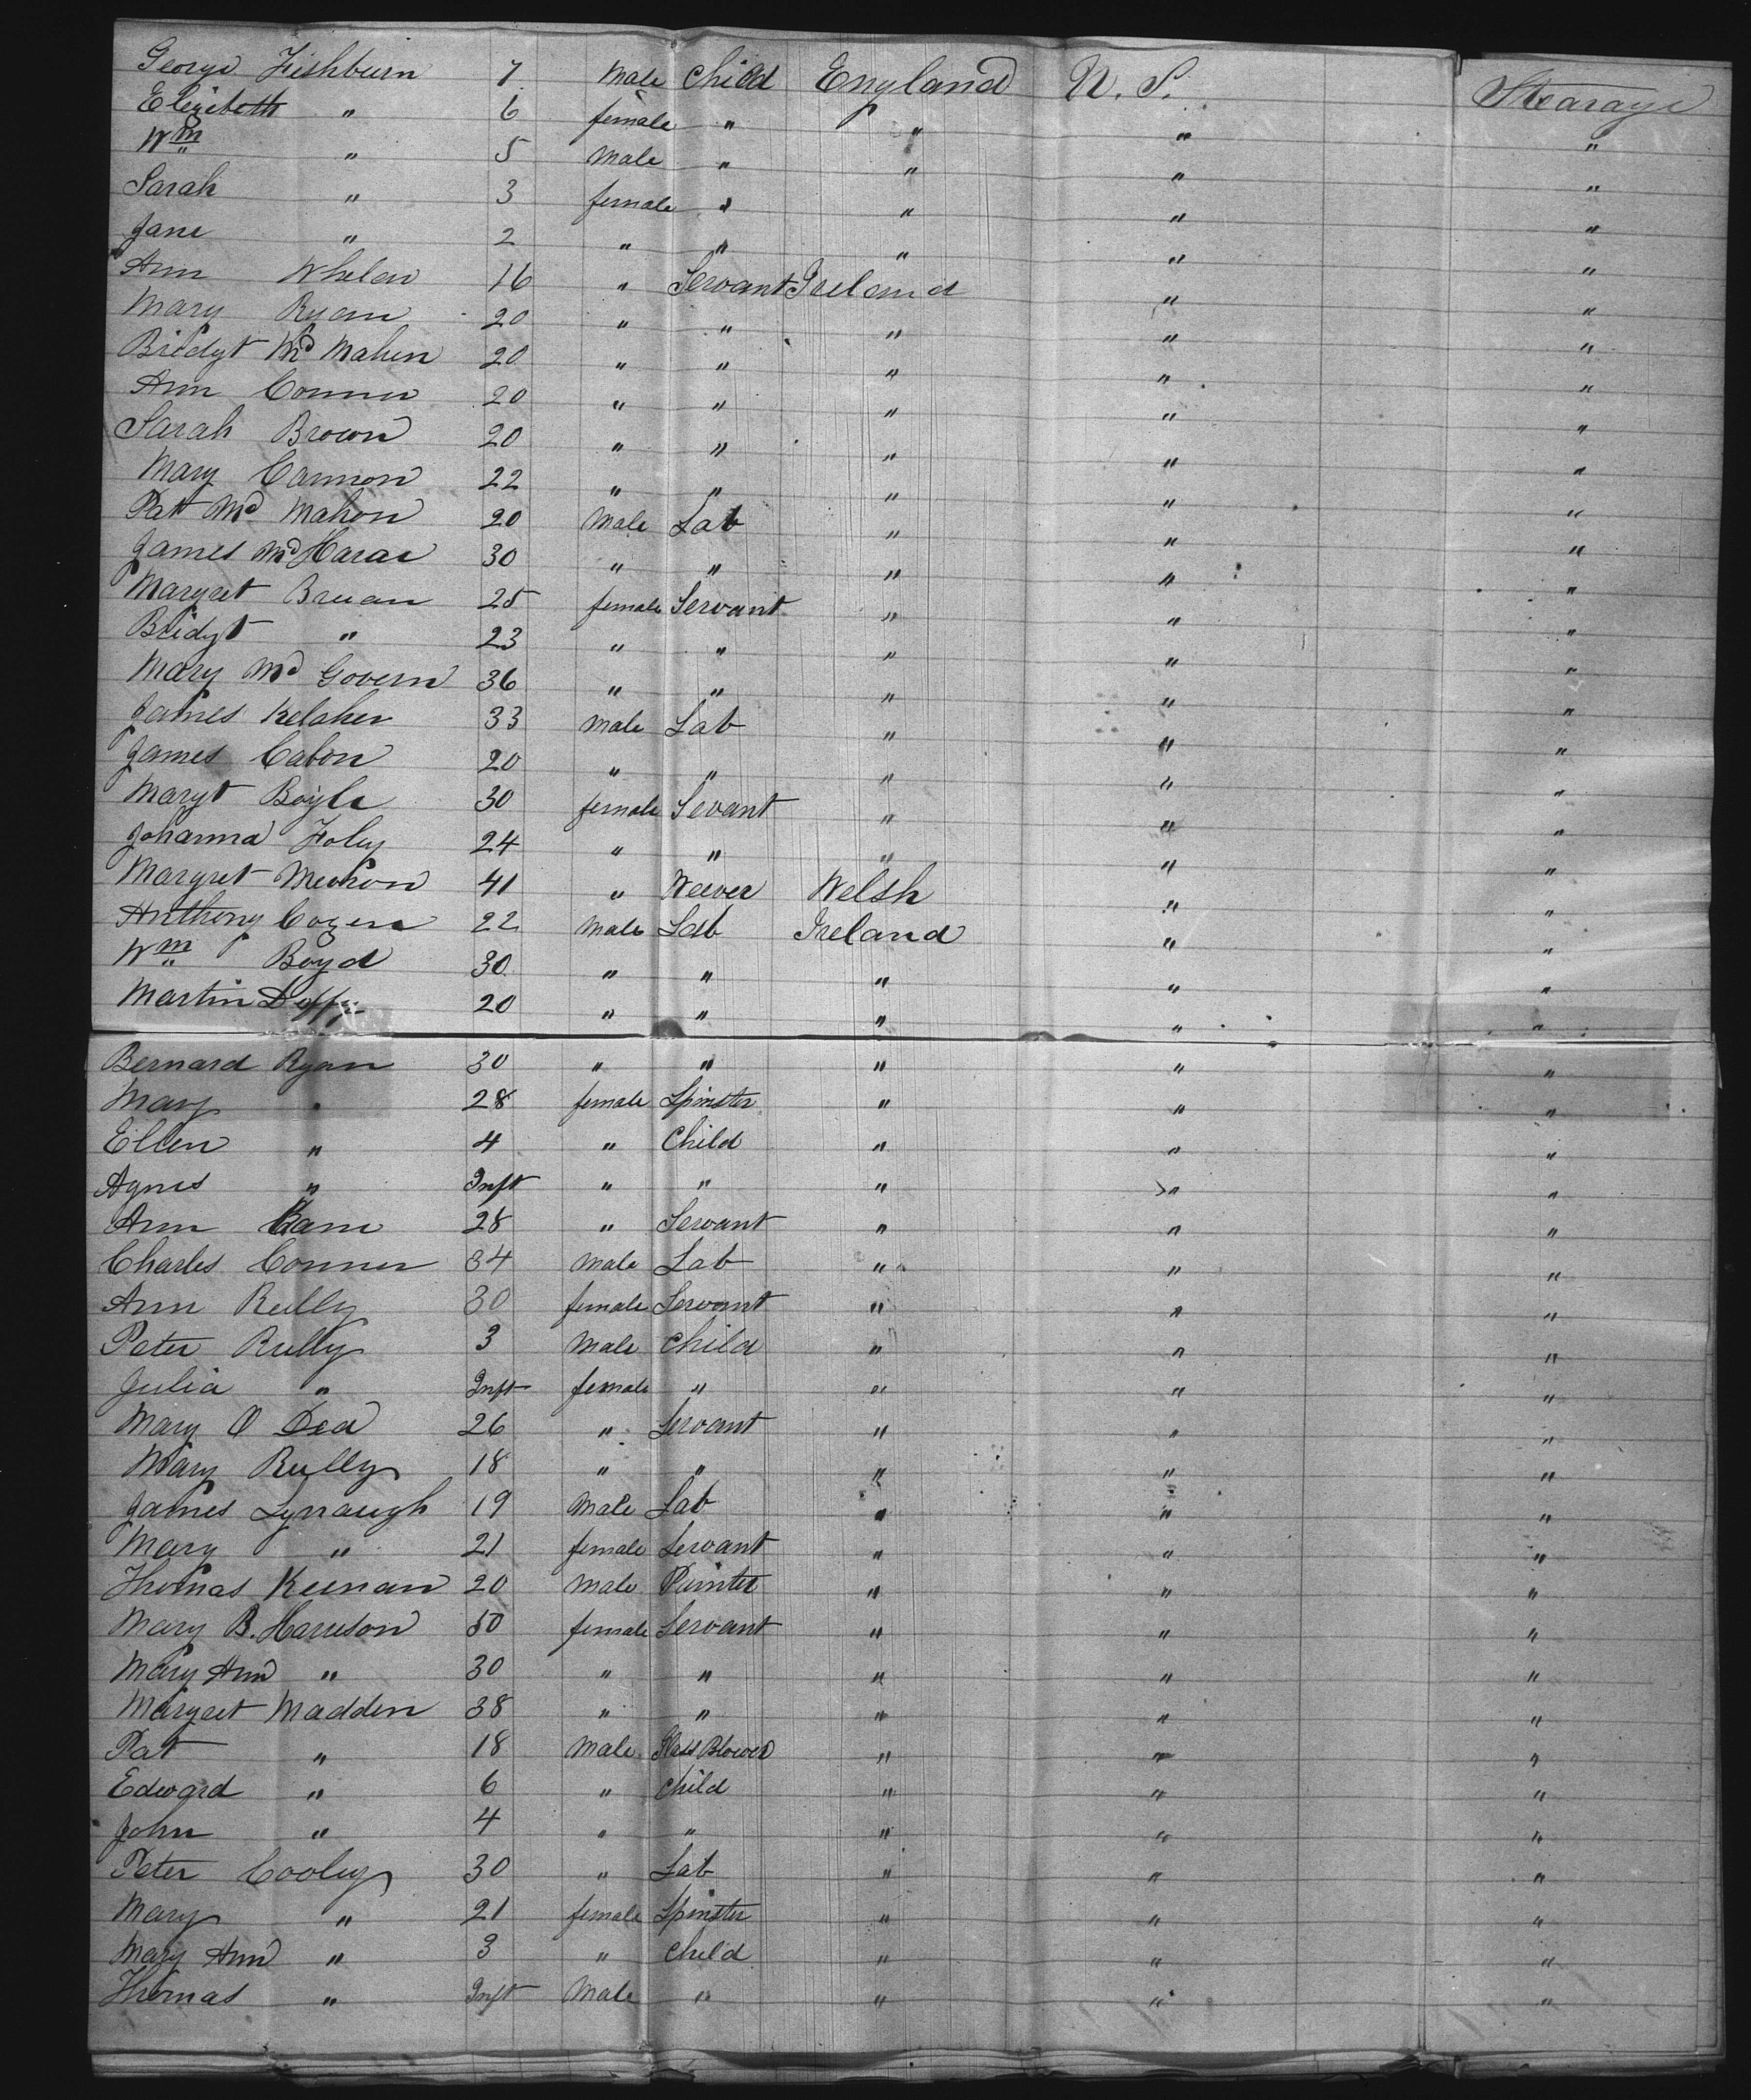 George Fishburn 7 Male Child England U. S. Stearage
Elizibeth " 6 female " " " "
Wm " 5 Male " " " "
Sarah " 3 female " " " "
Jane " 2 " " " " "
Ann Whelan 16 " Servant Ireland " "
Mary Ryan 20 " " " " "
Bridgt Mc Mahen 20 " " " " "
Ann Conner 20 " " " " "
Sarah Brown 20 " " " " "
Mary Cannon 22 " " " " "
Pat Mc Mahon 20 Male Lab " " "
James Mc Harar 30 " " " " "
Margret Bruan 25 female Servant " " "
Bridgt " 23 " " " " "
Mary Mc Govern 36 " " " " "
James Kelaher 33 Male Lab " " "
James Cabon 20 " " " " "
Margt Boyle 30 female Sevant " " "
Johanna Foley 24 " " " " "
Margret 41 " Weever Welsh " "
Anthony Cozens 22 Male Lab Ireland " "
Wm Boyd 30 " " " " "
Martin Duffy 20 " " " " "
Bernard Ryan 30 " " " " "
Mary " 28 female Spinster " " "
Ellen " 4 " Child " " "
Agnes " Inft " " " " "
Ann Kane 28 " Servant " " "
Charles Conner 34 Male Lab " " "
Ann Reilly 30 female Servant " " "
Peter Reilly 3 Male Child " " "
Julia " Inft female " " " "
Mary O Dea 26 " Servant " " "
Mary Reilly 18 " " " " "
James Lynaugh 19 Male Lab " " "
Mary " 21 female Servant " " "
Thomas Keenan 20 Male Painter " " "
Mary B. Harrison 50 female Servant " " "
Mary Ann " 30 " " " " "
Margret Madden 38 " " " " "
Pat " 18 Male Glass Blower " " "
Edward " 6 " Child " " "
John " 4 " " " " "
Peter Cooley 30 " Lab " " "
Mary " 21 female Spinster " " "
Mary Ann " 3 " Child " " "
Thomas " Inft Male " " " "